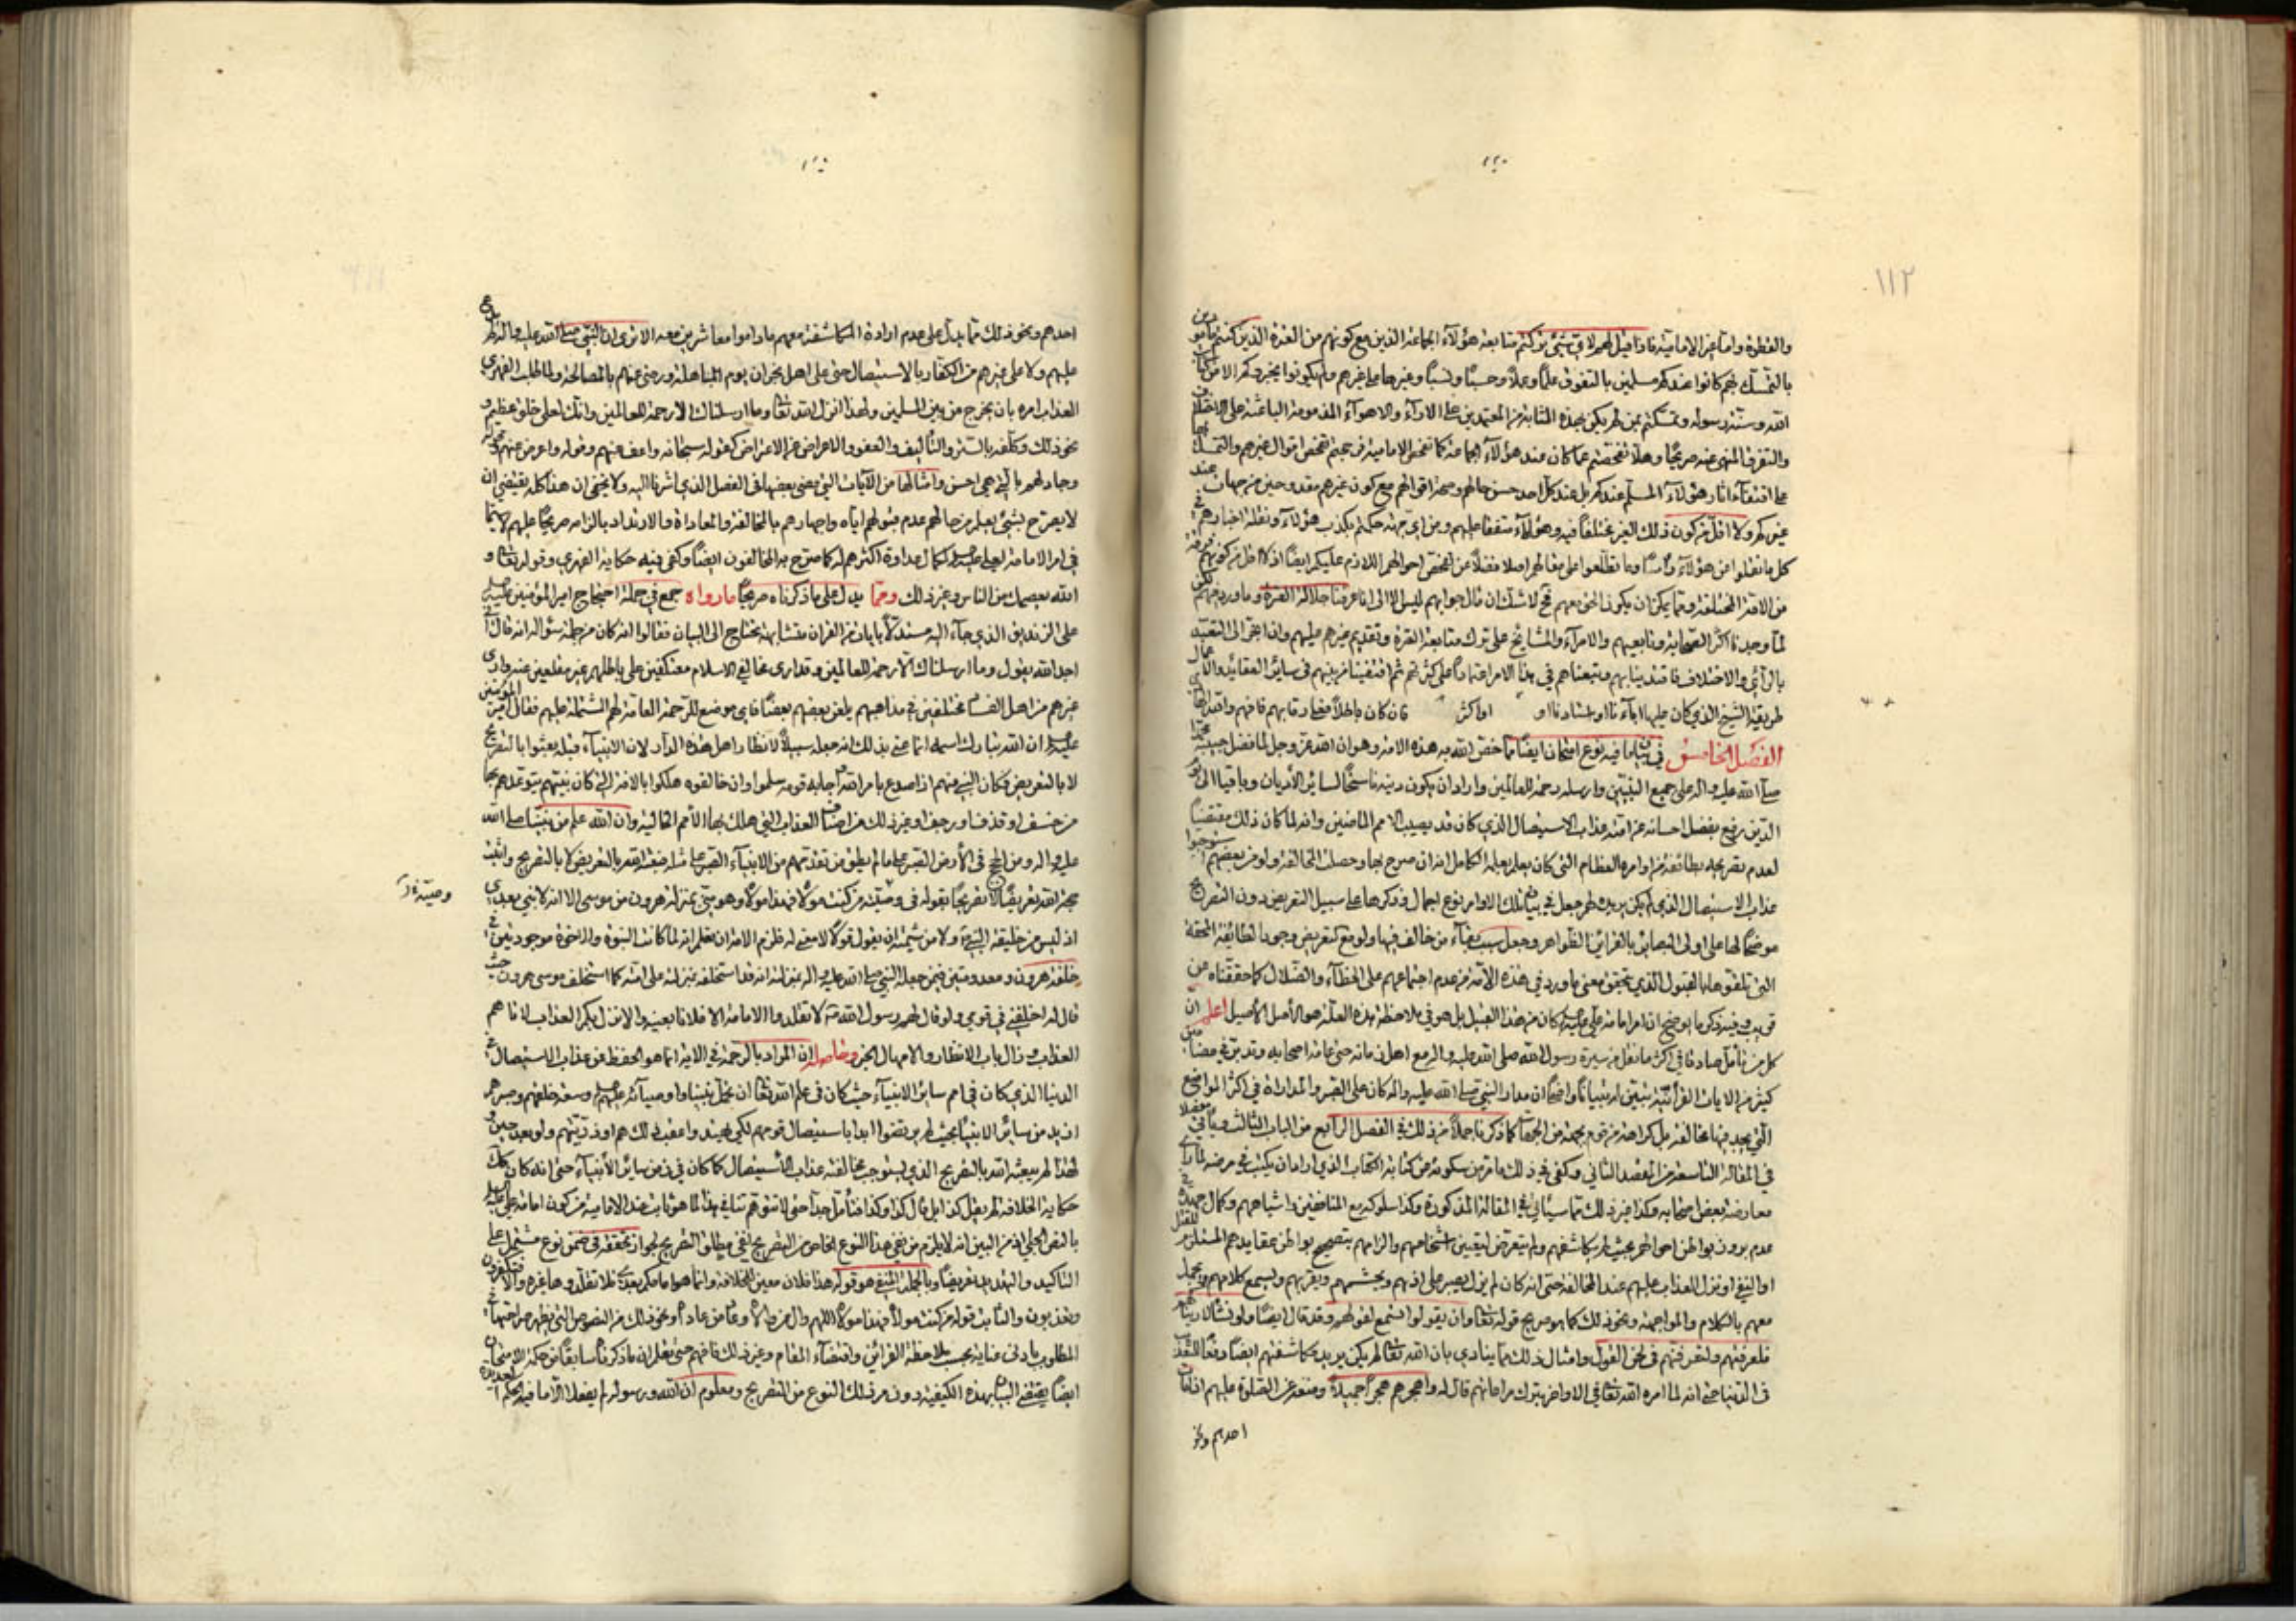 ١١٢
والفطرة واما عن الامامية فاذا قيل لهم لاي شيء تركتم متابعة هؤلاء الجماعة الذين مع كونهم من العترة الذين كنتم مامورين
بالتمسك بهم كانوا عندكم مسلمين بالتفوق علما وعملا وحسبا ونسبا وغيرها على غيرهم ولم يكونوا يخبرونكم الا من كتاب
الله وسنة رسوله وتمسكتم بمن لم يكن بهذه المثابة من المعتمدين على الاراء والاهواء المذمومة الباعثة على الاختلاف
والتفرق المنهي عنه صريحا وهلا تفحصتم عما كان عند هؤلاء الجماعة كما تفحص الامامية عن جهتم تفحص اقوال غيرهم والتمسك بها
على اقتفاء اثار هؤلاء المسلم عندكم بل عند كل احد حسن حالهم وصحة اقوالهم مع كون غيرهم مقدوحين من جهات عند
غيركم ولا اقل من كون ذلك الغير مختلفا فيه وهؤلاء متفقا عليهم ومن اي جهة حكمتم بكذب هؤلاء ونقلة اخبارهم في
كل ما نقلوا عن هؤلاء راسا وما تطلعوا على مقالهم اصلا فضلا عن تفحص احوالهم اللازم عليكم ايضا اذ لا اقل من كونهم فرقة
من الامة المختلفة ومما يمكن ان يكون الحق معهم فح لا شك ان مآل جوابهم ليس الا الى انا عرفنا جلالة العترة وما ورد فيهم لكن
لما وجدنا اكثر الصحابة وتابعيهم والامراء والمشايخ على ترك متابعة العترة وتقديم غيرهم عليهم وان انجر الى التعبد
بالراي والاختلاف فاقتدينا بهم وتبعناهم في هذا الامر اعتمادا على كثرتهم ثم اقتفينا من بينهم في سائر العقائد والاعمال
طريقة الشيخ الذي كان عليها اباءنا او استادنا او اكثر فان كان باطلا فعلى رقابهم فافهم واقتد
الفصل الخامس في بيان ما فيه نوع امتحان ايضا مما خص الله به هذه الامة وهو ان الله عز وجل لما فضل حبيبه محمدا
صلى الله عليه واله على جميع النبيين وارسله رحمة للعالمين واراد ان يكون دينه ناسخا لسائر الاديان وباقيا الى يوم
الدين رفع بفضل احسانه عن امته عذاب الاستيصال الذي كان قد يصيب الامم الماضين وانه لما كان ذلك مقتضيا
لعدم تصريحه بطائفة من اوامره العظام التي كان يعلم بعلمه الكامل انه ان صرح بها وحصلت المخالفة ولو من بعضهم استوجبوا
عذاب الاستيصال الذي لم يكن يريده لهم جعل في بيان تلك الاوامر نوع اجمال وذكرها على سبيل التعريض دون التصريح
موضحا لها على اولي البصائر بالقرائن الظواهر وجعل سبب بقاء من خالف فيها ولو مع كتعريض وجود الطائفة المحقة
التي تلقوها بالقبول الذي يتحقق معنى ما ورد في هذه الامة من عدم اجتماعهم على الخطاء والضلال كما حققناه عن
قريب وفيه ذكر ما يوضح ان امر امامة علي عليه السلام كان من هذا القبيل بل هو في ملاحظة هذه العلة هو الاصل الاصيل اعلم ان
كل من تامل صادقا في اكثر ما نقل من سيرة رسول الله صلى الله عليه واله مع اهل زمانه حتى عامة اصحابه وتدبر في مضامين
كثير من الايات القرانية تبين له تبيانا واضحا ان مدار النبي صلى الله عليه واله كان على الصبر والمداراة في اكثر المواضع
التي يجد فيها مخالفته بل كراهته من قوم بجهة من الجهات كما ذكرنا جملا من ذلك في الفصل الرابع من الباب الثالث وياتي مفصلا
في المقالة التاسعة من المقصد الثاني وكفى في ذلك ما مر من سكوته عن كتابة الكتاب الذي اراد ان يكتب في مرضه لما راى
معارضة بعض اصحابه وكذا غير ذلك مما سياتي في المقالة المذكورة وكذا سلوكه مع المنافقين واشباههم وكمال جهده في
عدم بروز بواطن احوالهم بحيث لم يكاشفهم ولم يتعرض لتعيين اشخاصهم والزامهم بتصحيح بواطن عقايدهم المستلزم للقتل
او النفي او نزول العذاب عليهم عند المخالفة حتى انه كان لم يزل يصبر على اذيهم ويحشمهم ويقربهم ويسمع كلامهم ويجمل
معهم بالكلام والمواجهة ونحو ذلك كما هو صريح قوله تعالى وان يقولوا تسمع لقولهم وقد قال ايضا ولو نشاء لاريناكهم
فلعرفتهم ولتعرفنهم في لحن القول وامثال ذلك مما ينادي بان الله تعالى لم يكن يريد مكاشفتهم ايضا دفعا للعذاب
في الدنيا حتى انه لما امره الله تعالى في الاواخر بترك مراعاتهم قال له واهجرهم هجرا جميلا ومنعه عن الصلوة عليهم اذا مات
احدهم ونحو
احدهم ونحو ذلك مما يدل على عدم ارادة المكاشفة معهم ماداموا معاشرين معه الا ترى ان النبي صلى الله عليه واله لم يدع
عليهم ولا على غيرهم من الكفار بالاستيصال حتى على اهل نجران يوم المباهلة ورضي عنهم بالمصالحة ولما طلب الفهري
العذاب امره بان يخرج من بين المسلمين ولهذا انزل الله تعالى وما ارسلناك الا رحمة للعالمين وانك لعلى خلق عظيم و
نحو ذلك وكلفه بالستر والتاليف والعفو والاعراض عن الاعتراض كقوله سبحانه واعف عنهم وقوله واعرض عنهم وقوله
وجادلهم بالتي هي احسن وامثالها من الايات التي مضى بعضها في الفصل الذي اشرنا اليه ولا يخفى ان هذا كله يقتضي ان
لا يصرح بشيء يعلم من حالهم عدم قبولهم اياه واجهارهم بالمخالفة والمعاداة والارتداد بالزامه صريحا عليهم لا سيما
في امر الامامة لعلي عليه السلام لكمال عداوة اكثرهم له كما صرح به المخالفون ايضا وكفى فيه حكاية الفهري وقوله تعالى و
الله يعصمك من الناس وغير ذلك ومما يدل على ما ذكرناه صريحا ما رواه جمع في جملة احتجاج امير المؤمنين عليه السلام
على الزنديق الذي جاء اليه مستدلا بايات من القران متشابهة يحتاج الى البيان فقالوا انه كان من جملة سؤاله انه قال اني
اجد الله يقول وما ارسلناك الا رحمة للعالمين وقد ارى مخالفي الاسلام معتكفين على باطلهم غير مقلعين عنه وارى
غيرهم من اهل الفساد مختلفين في مذاهبهم يلعن بعضهم بعضا فاي موضع للرحمة العامة لهم المشتملة عليهم فقال امير المؤمنين
عليه السلام ان الله تبارك اسمه انما عنى بذلك انه جعله سبيلا لانظار اهل هذه الدار لان الانبياء قبله بعثوا بالتصريح
لا بالتعريض وكان النبي منهم اذا صدع بامر الله واجابه قومه سلموا وان خالفوه هلكوا بالافة التي كان نبيهم يتوعدهم بها
من خسف او قذف او رجف او غير ذلك من اصناف العذاب التي هلك بها الامم الخالية وان الله علم من نبينا صلى الله
عليه واله ومن الحجج في الارض الصبر على ما لم يطق من تقدمهم من الانبياء الصبر على مثله فبعثه الله بالتعريض لا بالتصريح واثبت
حجة الله تعريضا لا تصريحا بقوله في وصيه من كنت مولاه فهذا مولاه وهو مني بمنزلة هرون من موسى الا انه لا نبي بعدي
وصيته ل
اذ ليس من خليقة النبوة ولا من شيمته ان يقول قولا لا معنى له فلزم الامة ان تعلم انه لما كانت النبوة والاخوة موجودتين في
خلقة هرون ومعدومتين فيمن جعله النبي صلى الله عليه واله بمنزلته انه قد استخلفه بمنزلته على امته كما استخلف موسى هرون حيث
قال له اخلفني في قومي ولو قال لهم رسول الله لا تقلدوا الامامة الا فلانا بعينه والا نزل بكم العذاب لاتاهم
العذاب وزال باب الانظار والامهال الخبر وحاصله ان المراد بالرحمة في الاية انما هو الحفظ عن عذاب الاستيصال في
الدنيا الذي كان في امم سائر الانبياء حيث كان في علم الله تعالى ان تحمل نبينا واوصيائه عليهم السلام وسعة خلقهم وصبرهم
ازيد من سائر الانبياء بحيث لم يرتضوا ابدا باستيصال قومهم لكي يهتدوا عقب ذلك هم او ذريتهم ولو بعد حين و
لهذا لم يبعثه الله بالتصريح الذي يستوجب مخالفته عذاب الاستيصال كما كان في زمن سائر الانبياء حتى انه كان كذلك
حكاية الخلافة لم يقل كذا بل قال كذا وكذا فتامل جدا حتى لا تتوهم تنافي هذا لما هو ثابت عند الامامية من كون امامة علي عليه السلام
بالنص الجلي اذ من البين انه لا يلزم من نفي هذا النوع الخاص من التصريح نفي مطلق التصريح لجواز تحققه في ضمن نوع مشتمل على
التاكيد والتهديد تعريضا وبالجملة المنفي هو قوله هذا فلان معين للخلافة وانما هو امامكم بعدي فلا تقلدوها غيره والا فتكفرون
وتعذبون والثابت قوله من كنت مولاه فهذا مولاه اللهم وال من والاه وعاد من عاداه ونحو ذلك من النصوص التي يظهر صراحتها في
المطلوب بادنى عناية بحسب ملاحظة القرائن واقتضاء المقام وغير ذلك فافهم حتى تعلم ان ما ذكرناه سابقا من حكمة الامتحان
ايضا يقتضي البيان بهذه الكيفية دون صرف ذلك النوع من التصريح ومعلوم ان الله ورسوله لم يفعلا الا ما فيه الحكم